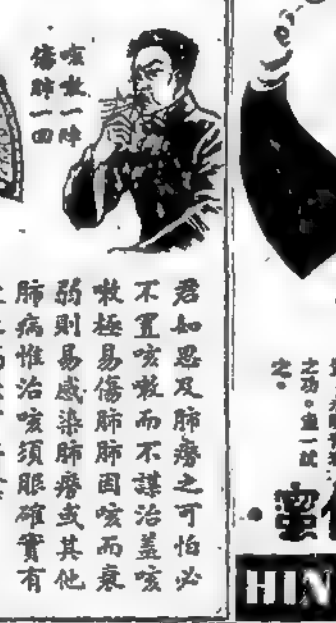 咳嗽一陣
傷肺一回
君如思及肺癆之可怕必
不置咳嗽而不謀治蓋咳
嗽極易傷肺肺因咳而衰
弱則易感染肺癆或其他
肺病惟治咳須服確實有
之功。魚一試
之。
蜜
HIN